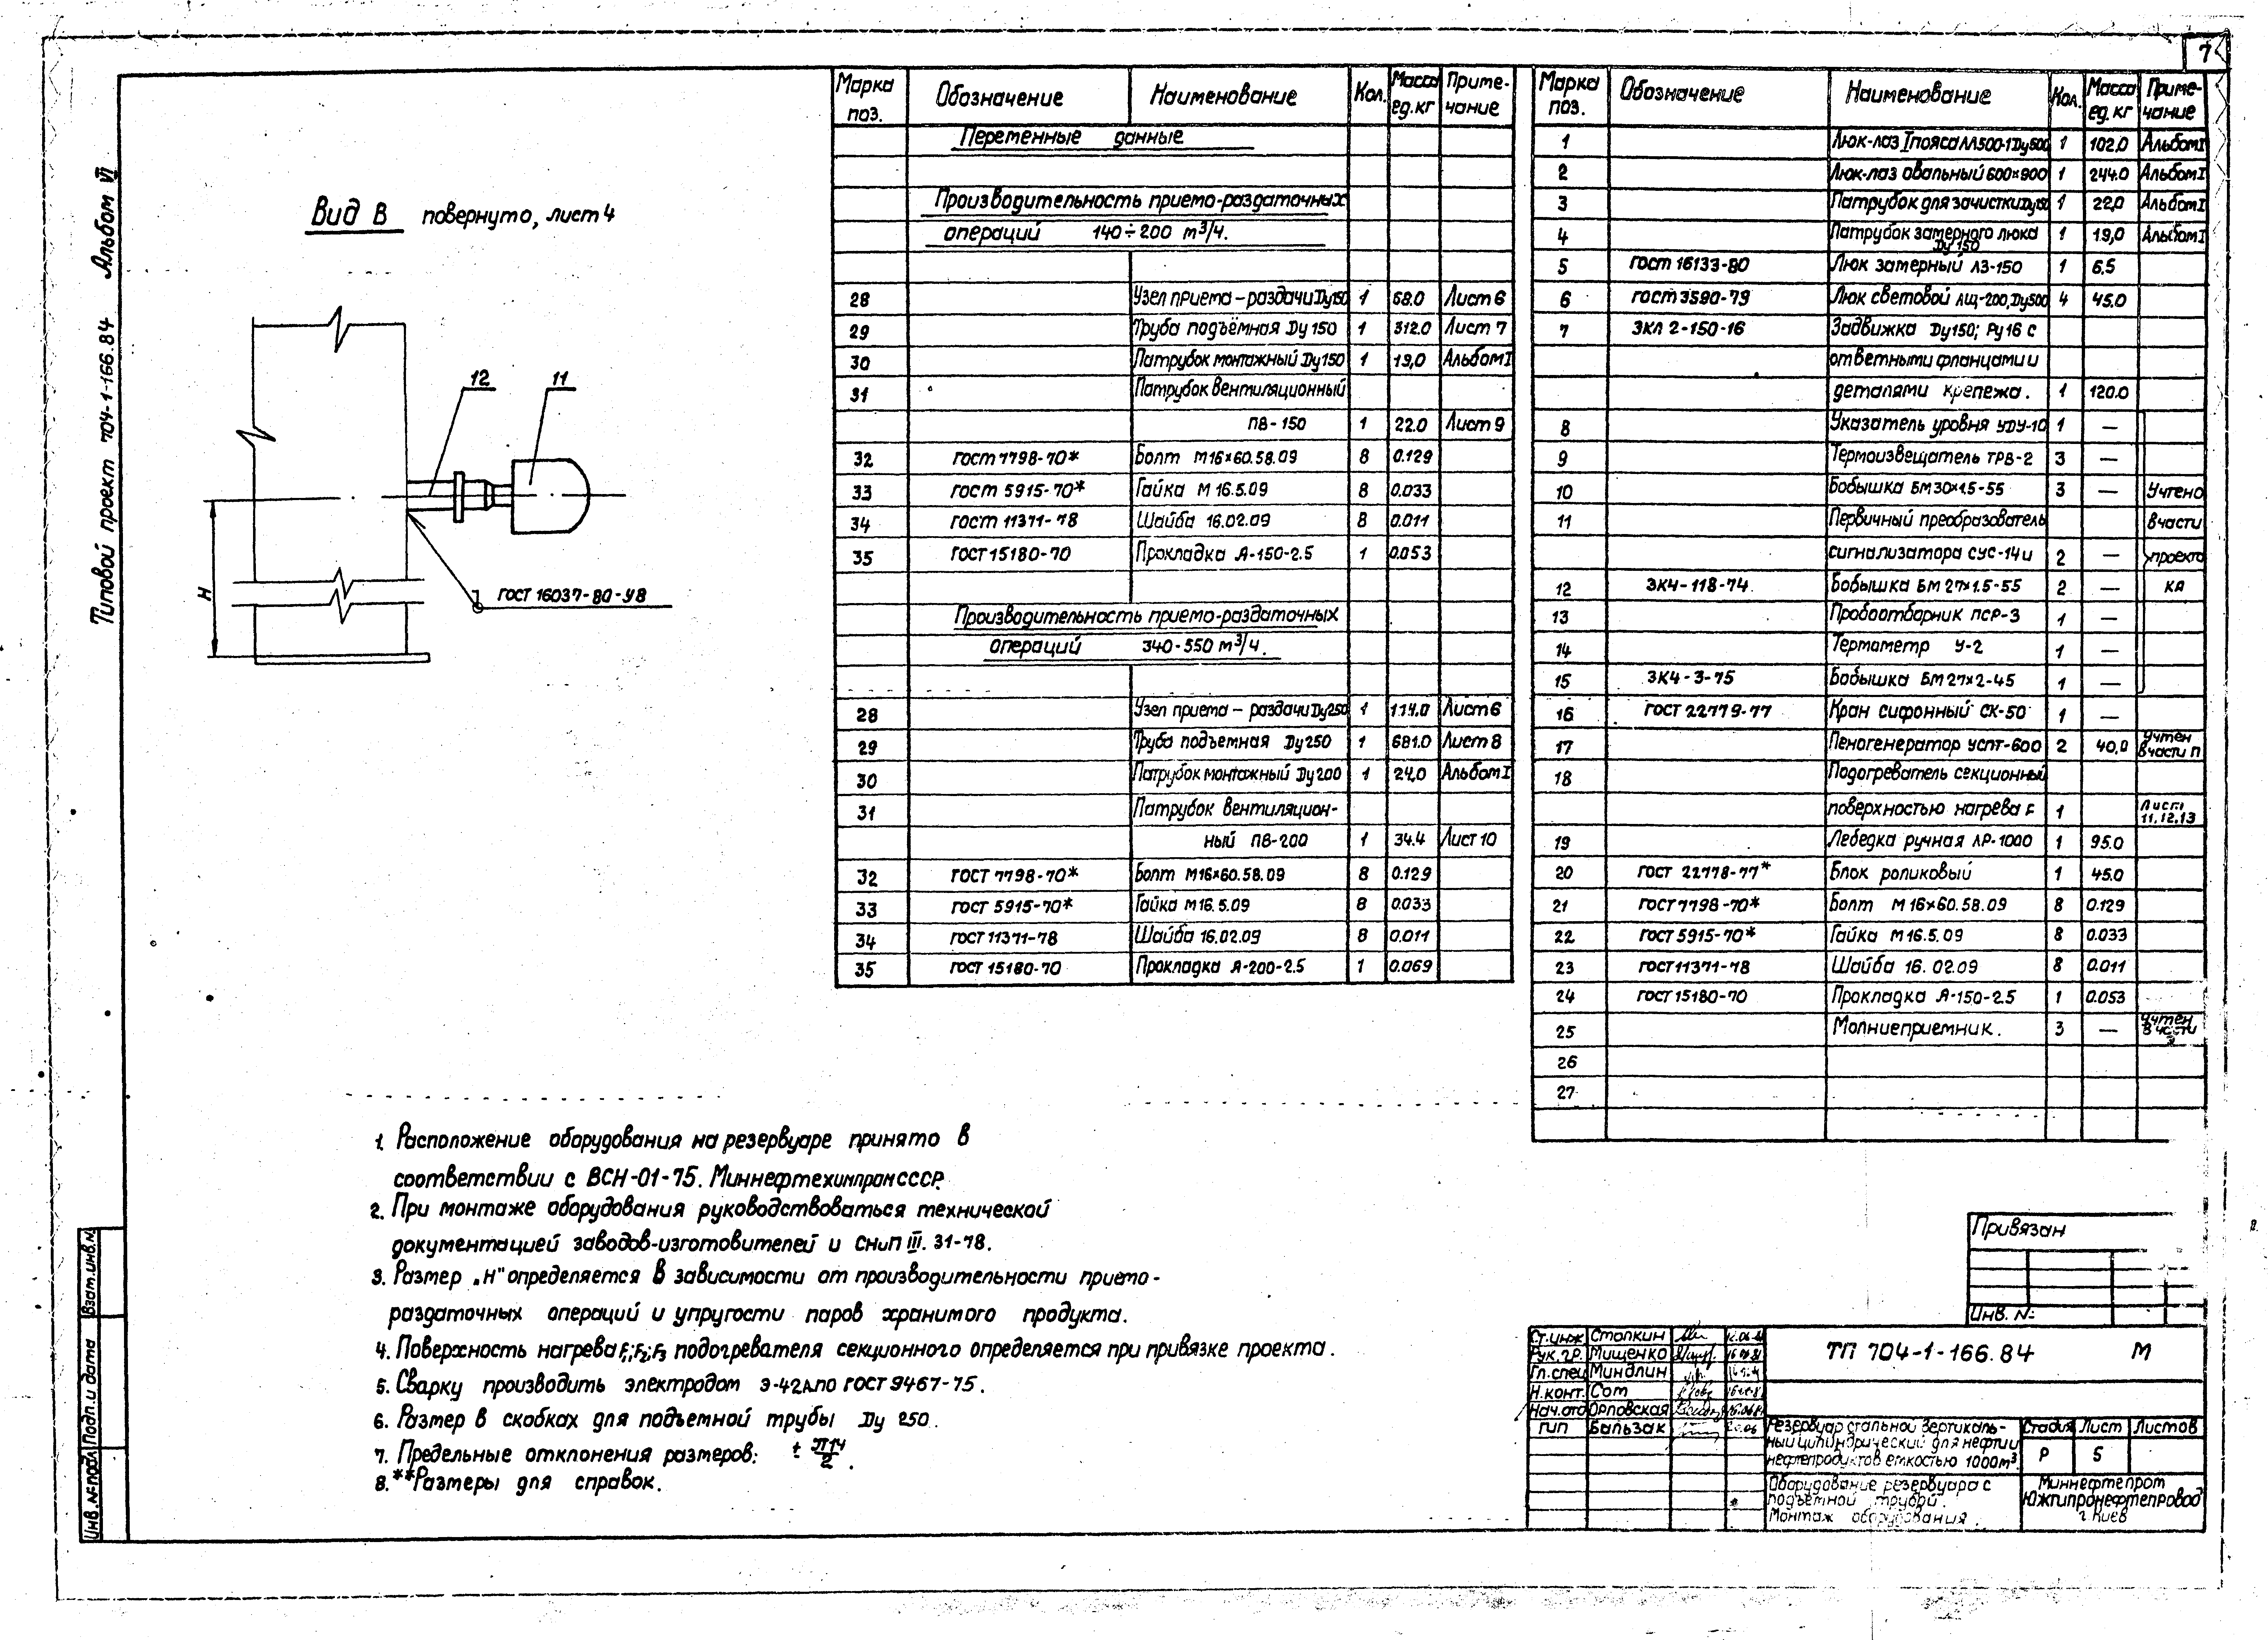 7
Типовой проект 704-1-166.84 Альбом VI
Вид В повернуто, лист 4
12
11
H
ГОСТ 16037-80-У8
Марка поз. Обозначение Наименование Кол. Масса ед.кг Приме-чание
Переменные данные
Производительность приемо-раздаточных
операций 140÷200 м³/ч.
28 Узел приема-раздачи Ду150 1 68.0 Лист 6
29 Труба подъёмная Ду 150 1 312.0 Лист 7
30 Патрубок монтажный Ду150 1 19,0 Альбом I
31 Патрубок вентиляционный
ПВ-150 1 22.0 Лист 9
32 ГОСТ 7798-70* Болт М16×60.58.09 8 0.129
33 ГОСТ 5915-70* Гайка М 16.5.09 8 0.033
34 ГОСТ 11371-78 Шайба 16.02.09 8 0.011
35 ГОСТ 15180-70 Прокладка А-150-2.5 1 0.053
Производительность приемо-раздаточных
операций 340-550 м³/ч.
28 Узел приема-раздачи Ду250 1 114.0 Лист 6
29 Труба подъемная Ду250 1 681.0 Лист 8
30 Патрубок монтажный Ду200 1 24.0 Альбом I
31 Патрубок вентиляцион-
ный ПВ-200 1 34.4 Лист 10
32 ГОСТ 7798-70* Болт М16×60.58.09 8 0.129
33 ГОСТ 5915-70* Гайка М16.5.09 8 0.033
34 ГОСТ 11371-78 Шайба 16.02.09 8 0.011
35 ГОСТ 15180-70 Прокладка А-200-2.5 1 0.069
Марка поз. Обозначение Наименование Кол. Масса ед.кг Приме-чание
1 Люк-лаз I пояса ЛЛ500-1 Ду500 1 102.0 Альбом I
2 Люк-лаз овальный 600×900 1 244.0 Альбом I
3 Патрубок для зачистки Ду150 1 22,0 Альбом I
4 Патрубок замерного люка Ду 150 1 19,0 Альбом I
5 ГОСТ 16133-80 Люк замерный ЛЗ-150 1 6.5
6 ГОСТ 3590-79 Люк световой ЛЩ-200, Ду500 4 45.0
7 ЗКЛ 2-150-16 Задвижка Ду150; Ру16 с
ответными фланцами и
деталями крепежа. 1 120.0
8 Указатель уровня УДУ-10 1 —
9 Термоизвещатель ТРВ-2 3 —
10 Бобышка БМ30×1.5-55 3 — Учтено
11 Первичный преобразователь в части
сигнализатора СУС-14И 2 — проекта
12 ЗК4-118-74 Бобышка БМ 27×1.5-55 2 — КА
13 Пробоотборник ПСР-3 1 —
14 Термометр У-2 1 —
15 ЗК4-3-75 Бобышка БМ27×2-45 1 —
16 ГОСТ 22779-77 Кран сифонный СК-50 1 —
17 Пеногенератор УСПТ-600 2 40,0 Учтен в части П
18 Подогреватель секционный
поверхностью нагрева F 1 Лист 11,12,13
19 Лебедка ручная ЛР-1000 1 95.0
20 ГОСТ 22778-77* Блок роликовый 1 45.0
21 ГОСТ 7798-70* Болт М16×60.58.09 8 0.129
22 ГОСТ 5915-70* Гайка М16.5.09 8 0.033
23 ГОСТ 11371-78 Шайба 16.02.09 8 0.011
24 ГОСТ 15180-70 Прокладка А-150-2.5 1 0.053
25 Молниеприемник. 3 — Учтен в части
26
27
1. Расположение оборудования на резервуаре принято в
соответствии с ВСН-01-75. Миннефтехимпром СССР.
2. При монтаже оборудования руководствоваться технической
документацией заводов-изготовителей и СНиП III. 31-78.
3. Размер „Н" определяется в зависимости от производительности приемо-
раздаточных операций и упругости паров хранимого продукта.
4. Поверхность нагрева F₁;F₂;F₃ подогревателя секционного определяется при привязке проекта.
5. Сварку производить электродом Э-42А по ГОСТ 9467-75.
6. Размер в скобках для подъемной трубы Ду 250.
7. Предельные отклонения размеров: ± IT14/2.
8. **Размеры для справок.
Привязан
Инв. №
Ст.инж. Столкин
Рук.гр. Мищенко
Гл.спец. Миндлин
Н.конт. Сом
Нач.отд Орловская
ГИП Бальзак
ТП 704-1-166.84 М
Резервуар стальной вертикаль-
ный цилиндрический для нефти и
нефтепродуктов емкостью 1000м³.
Стадия Лист Листов
Р 5
Оборудование резервуара с
подъемной трубой.
Монтаж оборудования.
Миннефтепром
Южгипронефтепровод
г. Киев
Взам.инв.№
Подп. и дата
Инв.№подл.